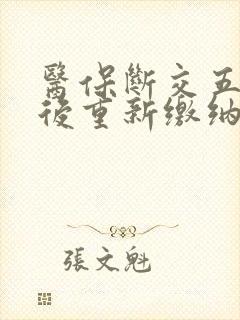 醫保斷交五
後重新繳納
張文魁